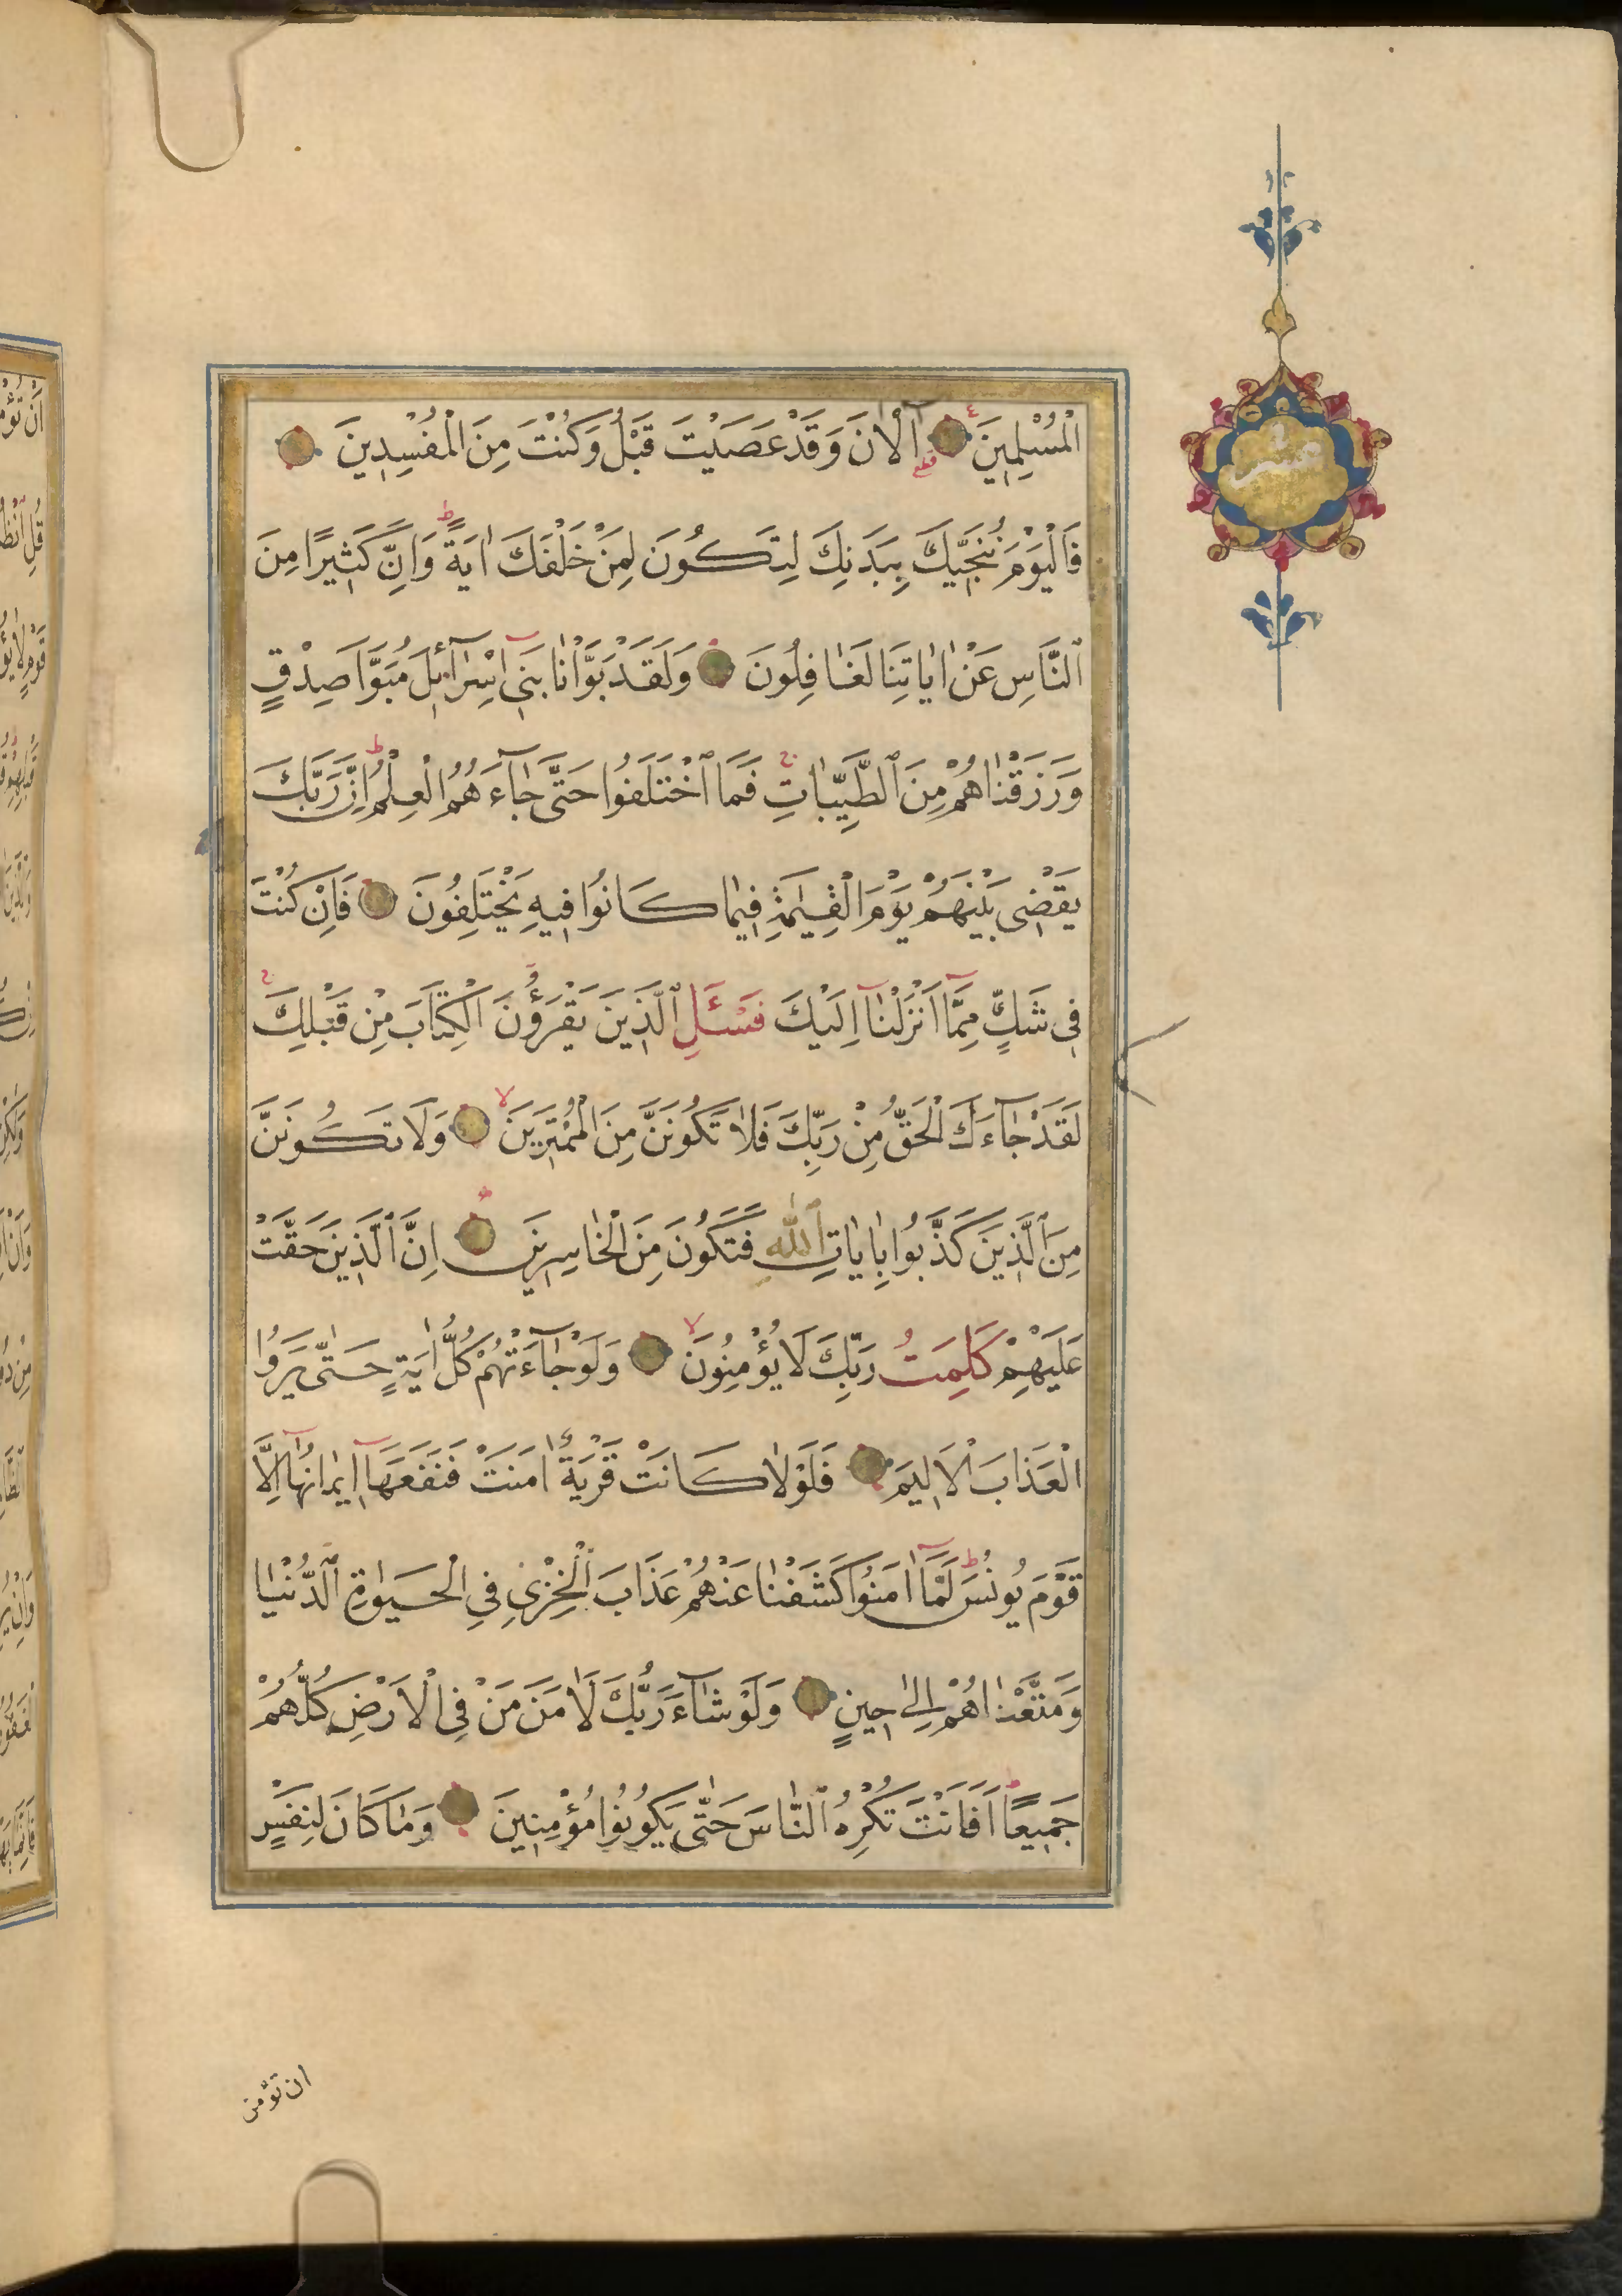 الْمُسْلِمِينَ آلْاٰنَ وَقَدْ عَصَيْتَ قَبْلُ وَكُنْتَ مِنَ الْمُفْسِدِينَ
فَالْيَوْمَ نُنَجِّيكَ بِبَدَنِكَ لِتَكُونَ لِمَنْ خَلْفَكَ اٰيَةً ط وَاِنَّ كَثِيرًا مِنَ
ٱلنَّاسِ عَنْ اٰيَاتِنَا لَغَافِلُونَ وَلَقَدْ بَوَّاْنَا بَنِىٓ اِسْرَآئِلَ مُبَوَّاَ صِدْقٍ
وَرَزَقْنَاهُمْ مِنَ ٱلطَّيِّبَاتِ ج فَمَا ٱخْتَلَفُوا حَتّٰى جَآءَهُمُ الْعِلْمُ ط اِنَّ رَبَّكَ
يَقْضِى بَيْنَهُمْ يَوْمَ الْقِيٰمَةِ فِيمَا كَانُوا فِيهِ يَخْتَلِفُونَ فَاِنْ كُنْتَ
فِى شَكٍّ مِمَّٓا اَنْزَلْنَٓا اِلَيْكَ فَسْـَٔلِ ٱلَّذِينَ يَقْرَؤُنَ الْكِتَابَ مِنْ قَبْلِكَ ج
لَقَدْ جَآءَكَ الْحَقُّ مِنْ رَبِّكَ فَلَا تَكُونَنَّ مِنَ الْمُمْتَرِينَ لا وَلَا تَكُونَنَّ
مِنَ ٱلَّذِينَ كَذَّبُوا بِاٰيَاتِ ٱللّٰهِ فَتَكُونَ مِنَ الْخَاسِرِينَ اِنَّ ٱلَّذِينَ حَقَّتْ
عَلَيْهِمْ كَلِمَتُ رَبِّكَ لَا يُؤْمِنُونَ لا وَلَوْ جَآءَتْهُمْ كُلُّ اٰيَةٍ حَتّٰى يَرَوُا
الْعَذَابَ الْاَلِيمَ فَلَوْلَا كَانَتْ قَرْيَةٌ اٰمَنَتْ فَنَفَعَهَٓا اِيمَانُهَٓا اِلَّا
قَوْمَ يُونُسَ ط لَمَّٓا اٰمَنُوا كَشَفْنَا عَنْهُمْ عَذَابَ الْخِزْىِ فِى الْحَيٰوةِ ٱلدُّنْيَا
وَمَتَّعْنَاهُمْ اِلٰى حِينٍ وَلَوْ شَآءَ رَبُّكَ لَاٰمَنَ مَنْ فِى الْاَرْضِ كُلُّهُمْ
جَمِيعًا ط اَفَاَنْتَ تُكْرِهُ ٱلنَّاسَ حَتّٰى يَكُونُوا مُؤْمِنِينَ وَمَا كَانَ لِنَفْسٍ
ان تؤمن
عشر